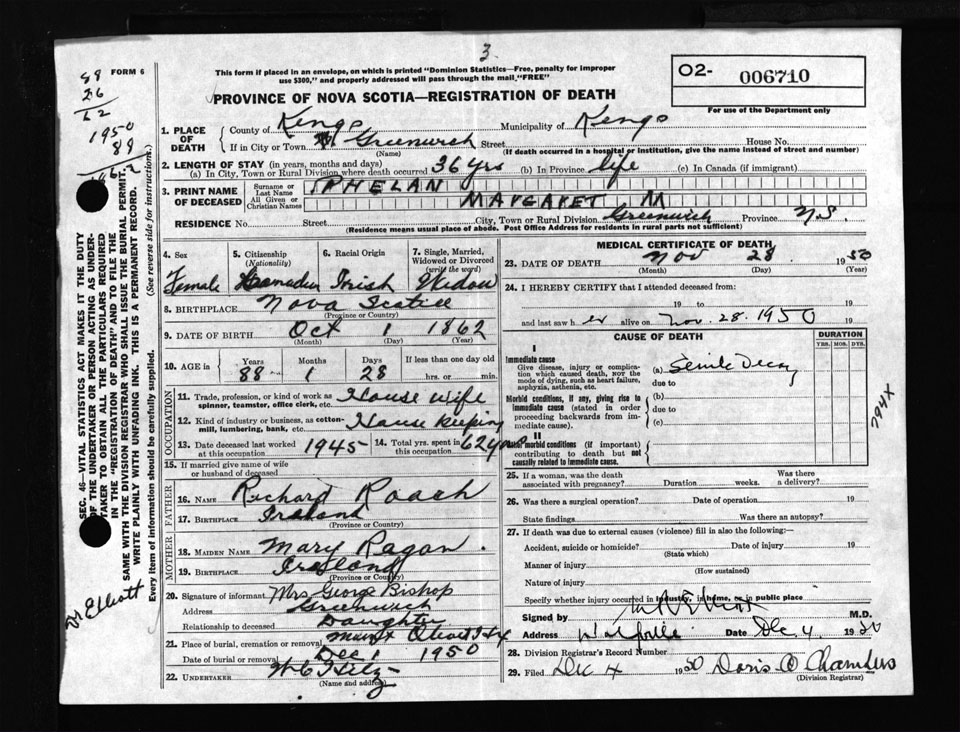 3
FORM 6
88
26
62
1950
89
This form if placed in an envelope, on which is printed "Dominion Statistics—Free, penalty for improper
use $300," and properly addressed will pass through the mail "FREE"
O2- 006710
For use of the Department only
PROVINCE OF NOVA SCOTIA—REGISTRATION OF DEATH
1. PLACE OF DEATH
County of Kings Municipality of Kings
If in City or Town Greenwich Street House No.
(Name) (If death occurred in a hospital or institution, give the name instead of street and number)
2. LENGTH OF STAY (in years, months and days)
(a) In City, Town or Rural Division where death occurred 36 yrs (b) In Province life (c) In Canada (if immigrant)
3. PRINT NAME OF DECEASED
Surname or Last Name PHELAN
All Given or Christian Names MARGARET M
RESIDENCE No. Street City, Town or Rural Division Greenwich Province N.S.
(Residence means usual place of abode. Post Office Address for residents in rural parts not sufficient)
4. Sex 5. Citizenship (Nationality) 6. Racial Origin 7. Single, Married, Widowed or Divorced (write the word)
Female Canadian Irish Widow
8. BIRTHPLACE Nova Scotia
(Province or Country)
9. DATE OF BIRTH Oct 1 1862
(Month) (Day) (Year)
10. AGE in Years Months Days If less than one day old
88 1 28 hrs. or min.
OCCUPATION
11. Trade, profession, or kind of work as spinner, teamster, office clerk, etc. House wife
12. Kind of industry or business, as cotton-mill, lumbering, bank, etc. House keeping
13. Date deceased last worked at this occupation 1945 14. Total yrs. spent in this occupation 62 yrs
15. If married give name of wife or husband of deceased
FATHER
16. NAME Richard Roach
17. BIRTHPLACE Ireland
(Province or Country)
MOTHER
18. MAIDEN NAME Mary Ragan.
19. BIRTHPLACE Ireland
(Province or Country)
20. Signature of informant Mrs George Bishop
Address Greenwich
Relationship to deceased Daughter
21. Place of burial, cremation or removal
Date of burial or removal Dec 1 1950
22. UNDERTAKER
(Name and address)
MEDICAL CERTIFICATE OF DEATH
23. DATE OF DEATH Nov 28 1950
(Month) (Day) (Year)
24. I HEREBY CERTIFY that I attended deceased from:
19 to 19
and last saw her alive on Nov. 28. 1950 19
CAUSE OF DEATH DURATION
YRS. MOS. DYS.
I
Immediate cause
Give disease, injury or complication which caused death, NOT the mode of dying, such as heart failure, asphyxia, asthenia, etc.
(a) Senile Decay
due to
Morbid conditions, if any, giving rise to immediate cause (stated in order proceeding backwards from immediate cause).
(b)
due to
(c)
II
Other morbid conditions (if important) contributing to death but not causally related to immediate cause.
794X
25. If a woman, was the death associated with pregnancy? Duration weeks. Was there a delivery?
26. Was there a surgical operation? Date of operation 19
State findings Was there an autopsy?
27. If death was due to external causes (violence) fill in also the following:—
Accident, suicide or homicide? Date of injury 19
(State which)
Manner of injury
(How sustained)
Nature of injury
Specify whether injury occurred in industry, in home, or in public place
Signed by M.D.
Address Wolfville Date Dec. 4 1950
28. Division Registrar's Record Number
29. Filed Dec 4 1950 Doris Chambers
(Division Registrar)
SEC. 46—VITAL STATISTICS ACT MAKES IT THE DUTY
OF THE UNDERTAKER OR PERSON ACTING AS UNDER-
TAKER TO OBTAIN ALL THE PARTICULARS REQUIRED
IN THE "REGISTRATION OF DEATH" AND TO FILE THE
SAME WITH THE DIVISION REGISTRAR WHO SHALL ISSUE THE BURIAL PERMIT.
WRITE PLAINLY WITH UNFADING INK. THIS IS A PERMANENT RECORD.
Every item of information should be carefully supplied. (See reverse side for instructions.)
Dr Elliott